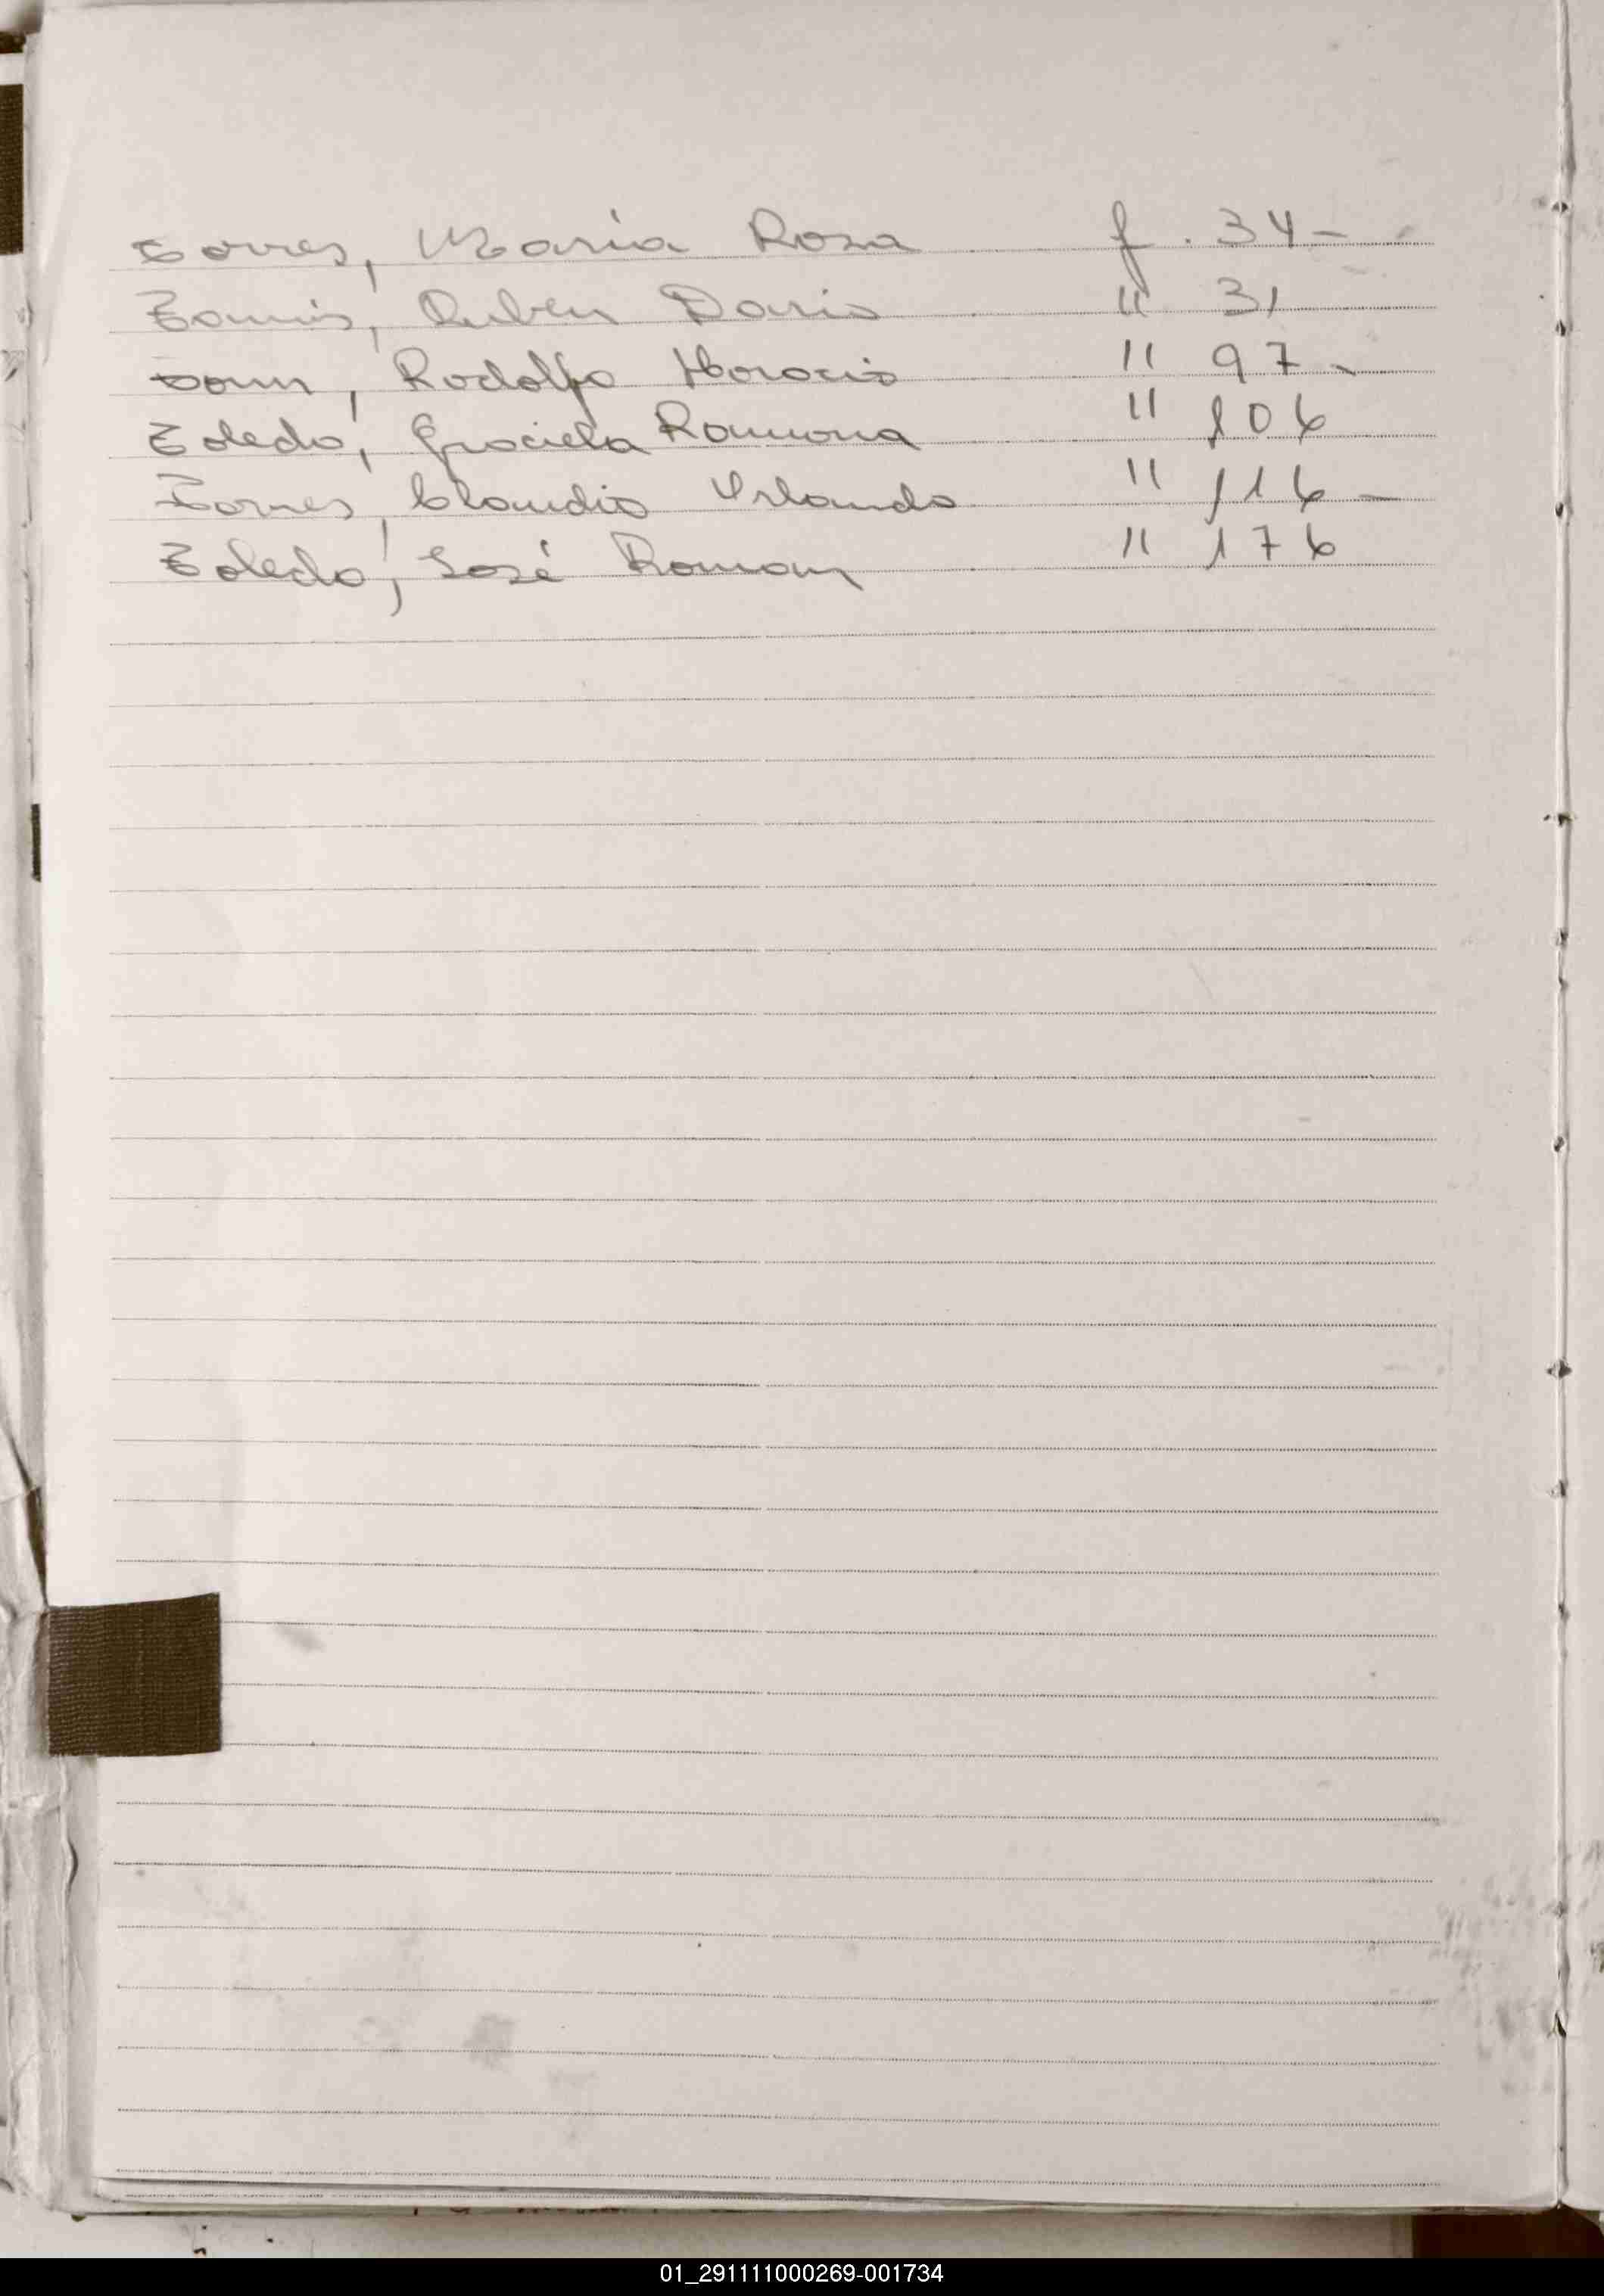 Torres, María Rosa f. 34-
Ruben Dario " 31
Rodolfo Horacio " 97-
Toledo, Graciela Ramona " 106
Torres, Claudio Orlando " 116-
Toledo, José Roman " 176
01_291111000269-001734